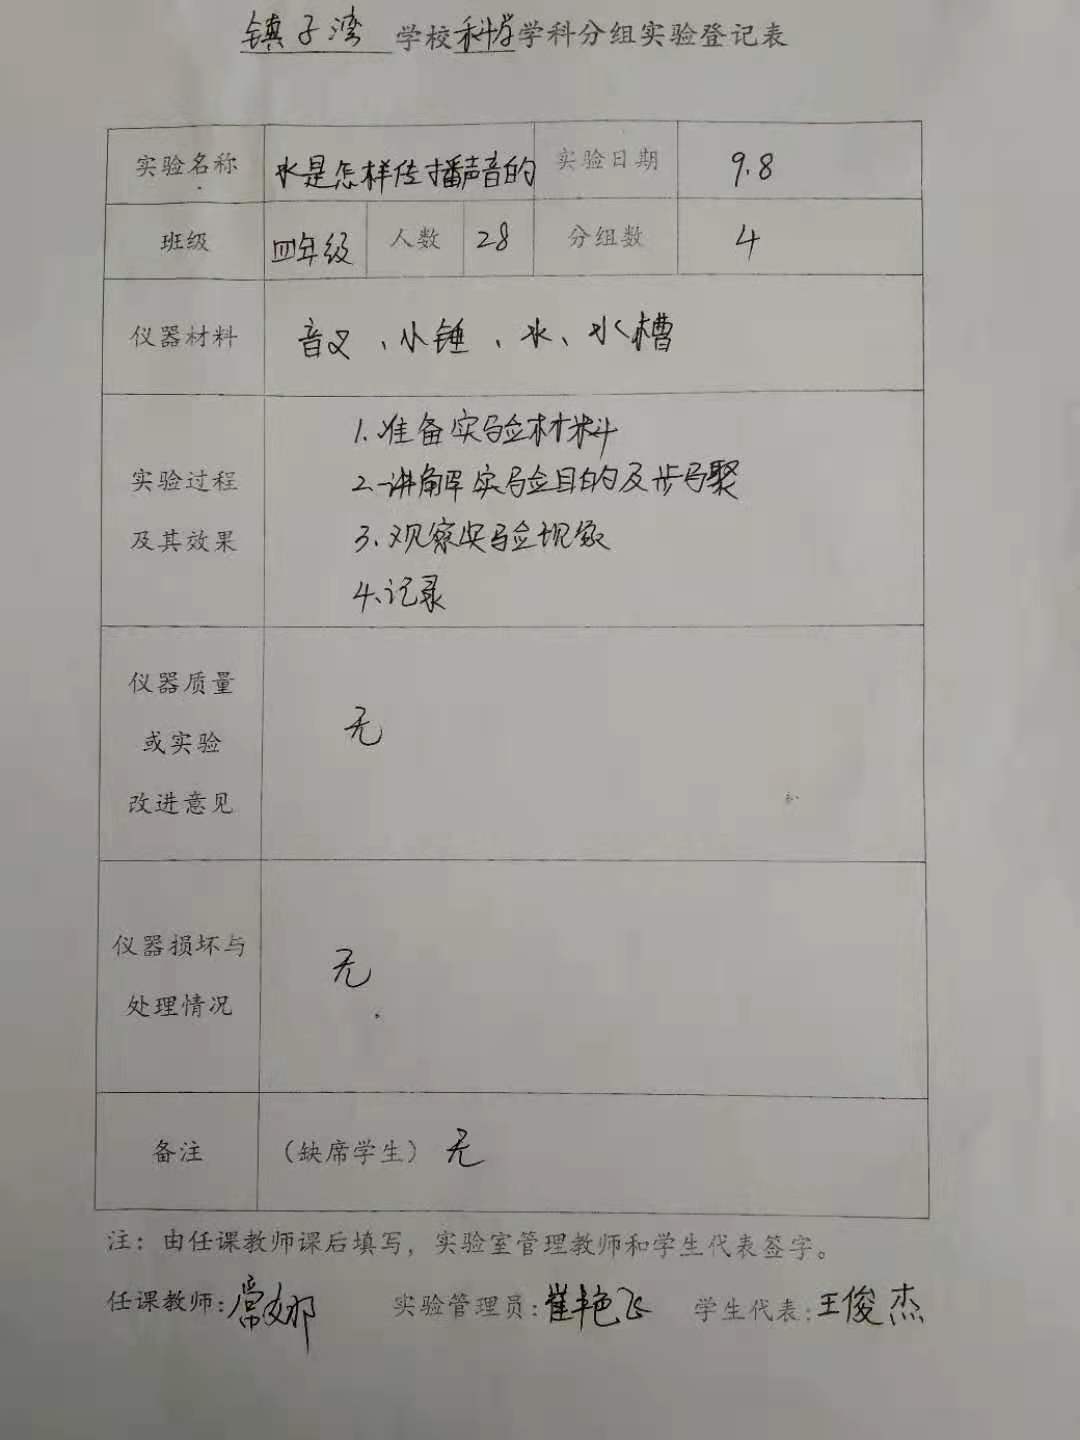 镇子湾 学校科学学科分组实验登记表
实验名称 水是怎样传播声音的 实验日期 9.8
班级 四年级 人数 28 分组数 4
仪器材料 音叉、小锤、水、水槽
1.准备实验材料
实验过程 2.讲解实验目的及步骤
及其效果 3.观察实验现象
4.记录
仪器质量
或实验 无
改进意见
仪器损坏与 无
处理情况
备注 (缺席学生) 无
注：由任课教师课后填写，实验室管理教师和学生代表签字。
任课教师:常娜 实验管理员:崔艳飞 学生代表:王俊杰